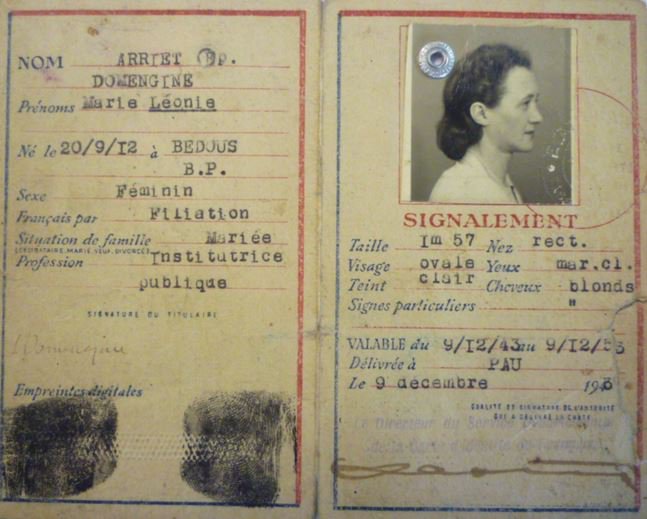 NOM ARRIET Ep.
DOMENGINE
Prénoms Marie Léonie
Né le 20/9/12 à BEDOUS
B.P.
Sexe Féminin
Français par Filiation
Situation de famille Mariée
(CÉLIBATAIRE, MARIÉ, VEUF, DIVORCÉ)
Profession Institutrice
publique
SIGNATURE DU TITULAIRE
Domengine
Empreintes digitales
SIGNALEMENT
Taille 1m 57 Nez rect.
Visage ovale Yeux mar.cl.
Teint clair Cheveux blonds
Signes particuliers "
VALABLE du 9/12/43 au 9/12/53
Délivrée à PAU
Le 9 décembre 1943
QUALITÉ ET SIGNATURE DE L'AUTORITÉ
QUI A DÉLIVRÉ LA CARTE
Le Directeur du Service
de la Carte d'Identité de Français